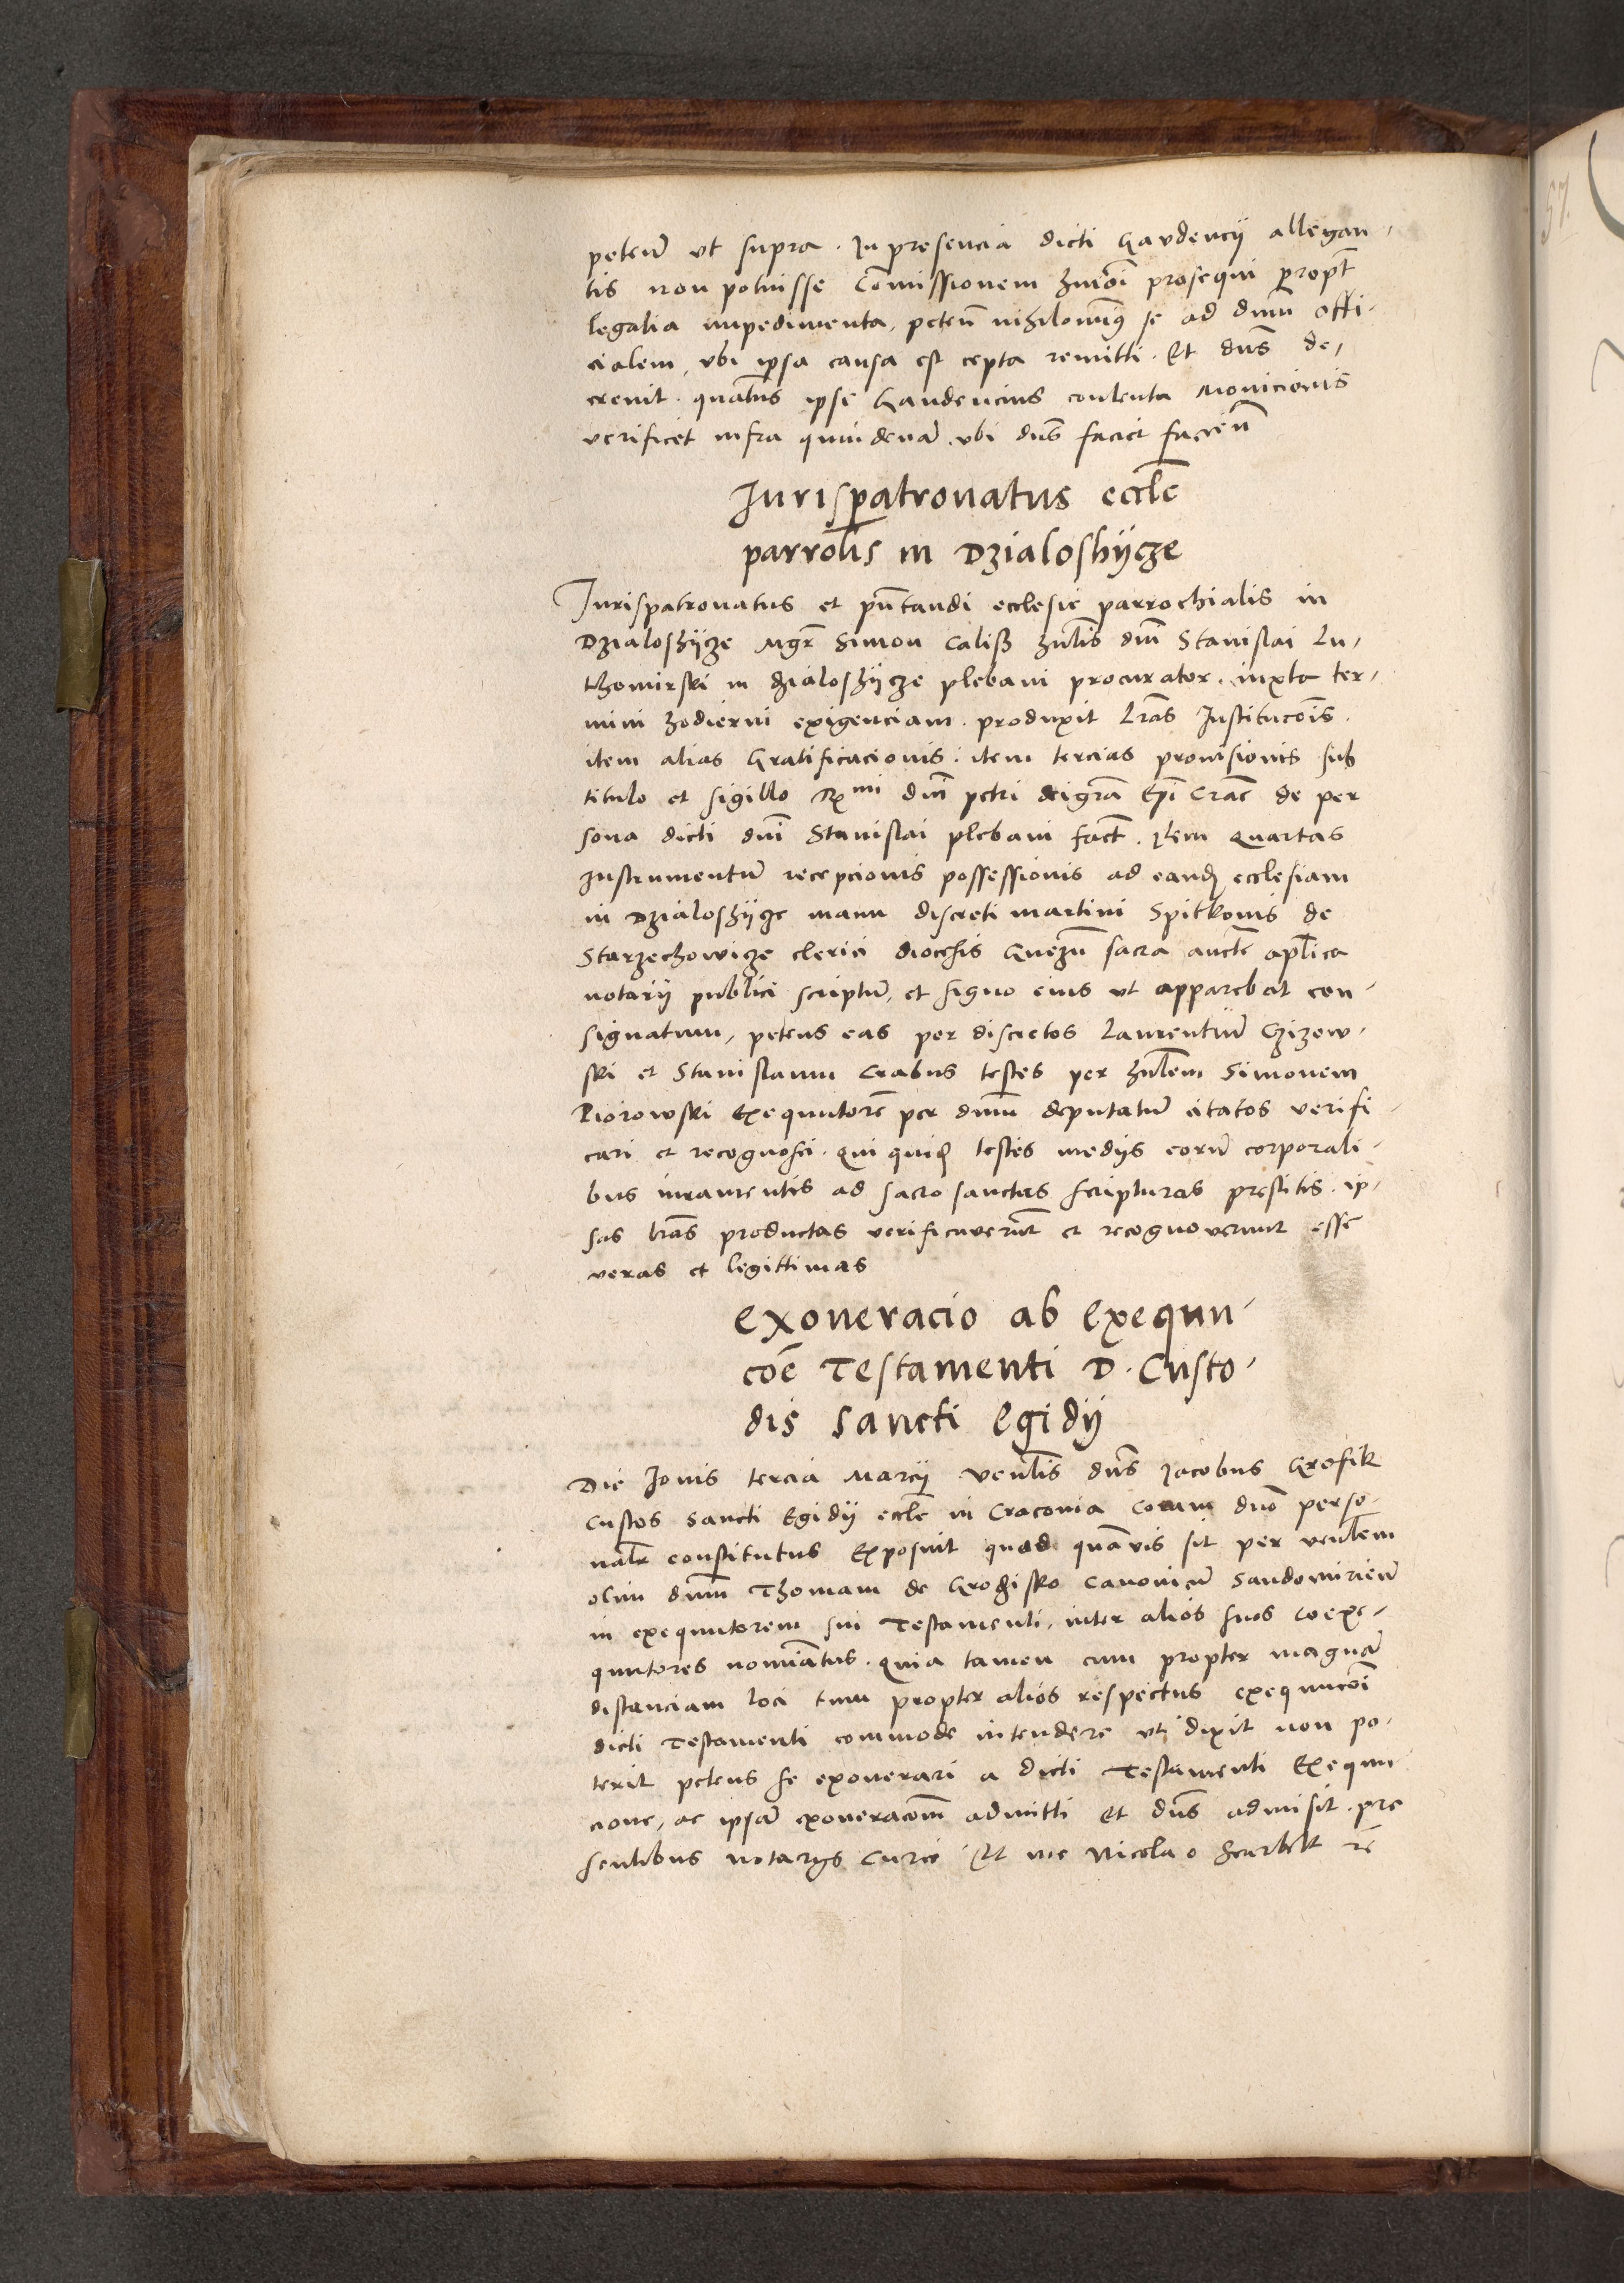 peteñ vt supra · In presencia dicti Gaudencij allegan-
tis non potuisse Com̃issionem hm̃õi prosequi propt̃
legalia impedimenta, peteñ nihilomiñꝰ se ad dñum offi-
cialem, vbi ipsa causa est cepta remitti · Et dñs de-
creuit · quãtus ipse Gaudencius contenta Monicionis
verificet infra quindenã, vbi dñs faciet facieñ
Jurispatronatus eccl̃e
parrol̃is in Dzialoshijcze
Jurispatronatus et pñtandi ecclesie parrochialis in
Dzialoshijcze Mgr̃ Simon Calisz hñl̃is dñi Stanislai Lu-
thomirski in dzialoshijcze plebani procurator, iuxta ter-
mini hodierni exigenciam, produxit l̃ras Institucõis,
item alias Gratificacionis · item tercias prouisionis sub
titulo et sigillo R̃mi dñi petri deigrã Ep̃i Crac̃ de per
sona dicti dñi Stanislai plebani fact̃ · Item quartas
Instrumentũ recepcionis possessionis ad eand̃ ecclesiam
in Dzialoshijcze manu discreti martini Spitkonis de
Starzechowicze clerici diocesis Gnezñ sacra auct̃e apl̃ica
notarij publici scriptũ, et signo eius vt apparebat con-
signatum, petens eas per discretos Laurentiũ Czizew-
ski et Stanislaum Crabus testes per hñl̃em Simonem
Piorowski Exequutorẽ per dñum deputatũ citatos verifi-
cari et recognosci · qui quid̃ testes medijs eorũ corporali-
bus iuramentis ad sacro sanctas scripturas prestitis · ip-
sas l̃ras productas verificauerũt et recognouerunt esse
veras et legittimas
Exoneracio ab Exequu-
cõe Testamenti D · Custo-
dis sancti Egidij
Die Jouis tercia Marcij Veñl̃is dñs Jacobus Grofik
custos sancti Egidij eccl̃e in Craconia Coram dño perso-
nalr̃ constitutus Exposuit quod quãvis sit per veñl̃em
olim dñum Thomam de Grodzisko Canonicũ Sandomirieñ
in exequutorem sui Testamenti, inter alios suos coexe-
quutores nomiãtus · quia tamen cum propter magnã
distanciam loci tum propter alios respectus exequucõi
dicti Testamenti commode intendere vt dixit non po-
terit petens se exonerari a dicti Testamenti Exequu
cione, ac ipsã exoneracõm admitti Et dñs admisit · pre
sentibus notarijs Curie Et me Nicolao